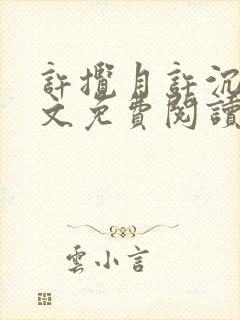 許攬月許沉
文免費閱讀
雲小言